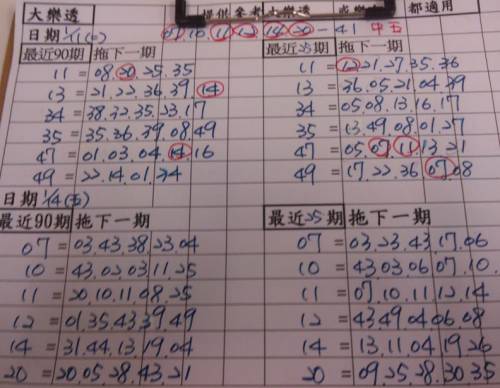 大樂透 提供參考大樂透 或 都適用
日期 1/1(二) 07.10.11.12.14.20-41 中五
最近90期 拖下一期 最近25期 拖下一期
11 = 08.20.25.35 11 = 12.21.27.35.36
13 = 21.22.36.39.14 13 = 36.05.21.04.39
34 = 38.32.35.23.17 34 = 05.08.13.16.17
35 = 35.36.39.08.49 35 = 13.49.08.01.27
47 = 01.03.04.14.16 47 = 05.07.11.13.21
49 = 22.14.01.34 49 = 17.22.36.07.08
日期 1/4(五)
最近90期 拖下一期 最近25期 拖下一期
07 = 03.43.38.23.04 07 = 03.23.43.17.06
10 = 43.02.03.11.25 10 = 43.03.06.07.10
11 = 20.10.11.08.25 11 = 07.10.11.12.14
12 = 01.35.43.39.49 12 = 43.49.04.06.08
14 = 31.44.13.19.04 14 = 13.11.04.19.26
20 = 20.05.28.43.21 20 = 09.25.28.30.35